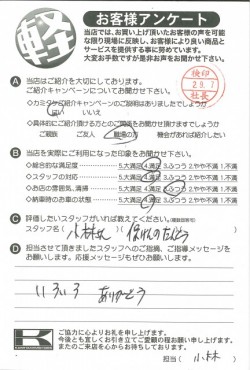 軽
お客様アンケート
当店では、お買い上げ頂いたお客様の声を可能
な限り現場に反映し、お客様により良い商品と
サービスを提供する事に努めています。
大変お手数ですが是非お声をお聞かせ下さい。
検印
29.7
社長
A 当店はご紹介を大切にしております。
ご紹介キャンペーンについてお聞かせ下さい。
◇カミタケご紹介キャンペーンのご説明はありましたでしょうか
はい いいえ
◇具体的にご紹介頂ける方とのご関係をお聞かせ頂けますでしょうか
ご親戚 ご友人 職場の方 機会があれば紹介したい
B 当店を実際にご利用になった印象をお聞かせ下さい。
◇総合的な満足度 5.大満足 4.満足 3.ふつう 2.やや不満 1.不満
◇スタッフの対応 5.大満足 4.満足 3.ふつう 2.やや不満 1.不満
◇お店の雰囲気、清掃 5.大満足 4.満足 3.ふつう 2.やや不満 1.不満
◇納車時のお車の状態 5.大満足 4.満足 3.ふつう 2.やや不満 1.不満
C 評価したいスタッフがいれば教えてください。(複数回答可)
スタッフ名( 小林さん )( ほけんのたんとう )
D 担当させて頂きましたスタッフへのご指摘、ご指導メッセージを
お願いします。応援メッセージもぜひお願いします。
いろいろ ありがとう
K
ご協力に心よりお礼を申し上げます。
今後とも宜しくお引き立てご愛顧の程お願い申し上げます。
またのご来店を心からお待ちしております。
担当( 小林 )